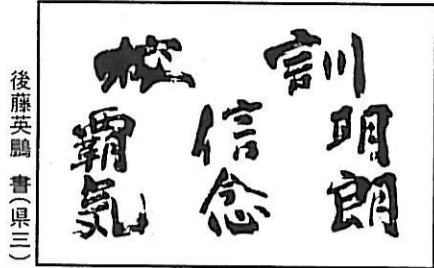 校訓
明朗
信念
覇気
後藤英鵬 書(県三)